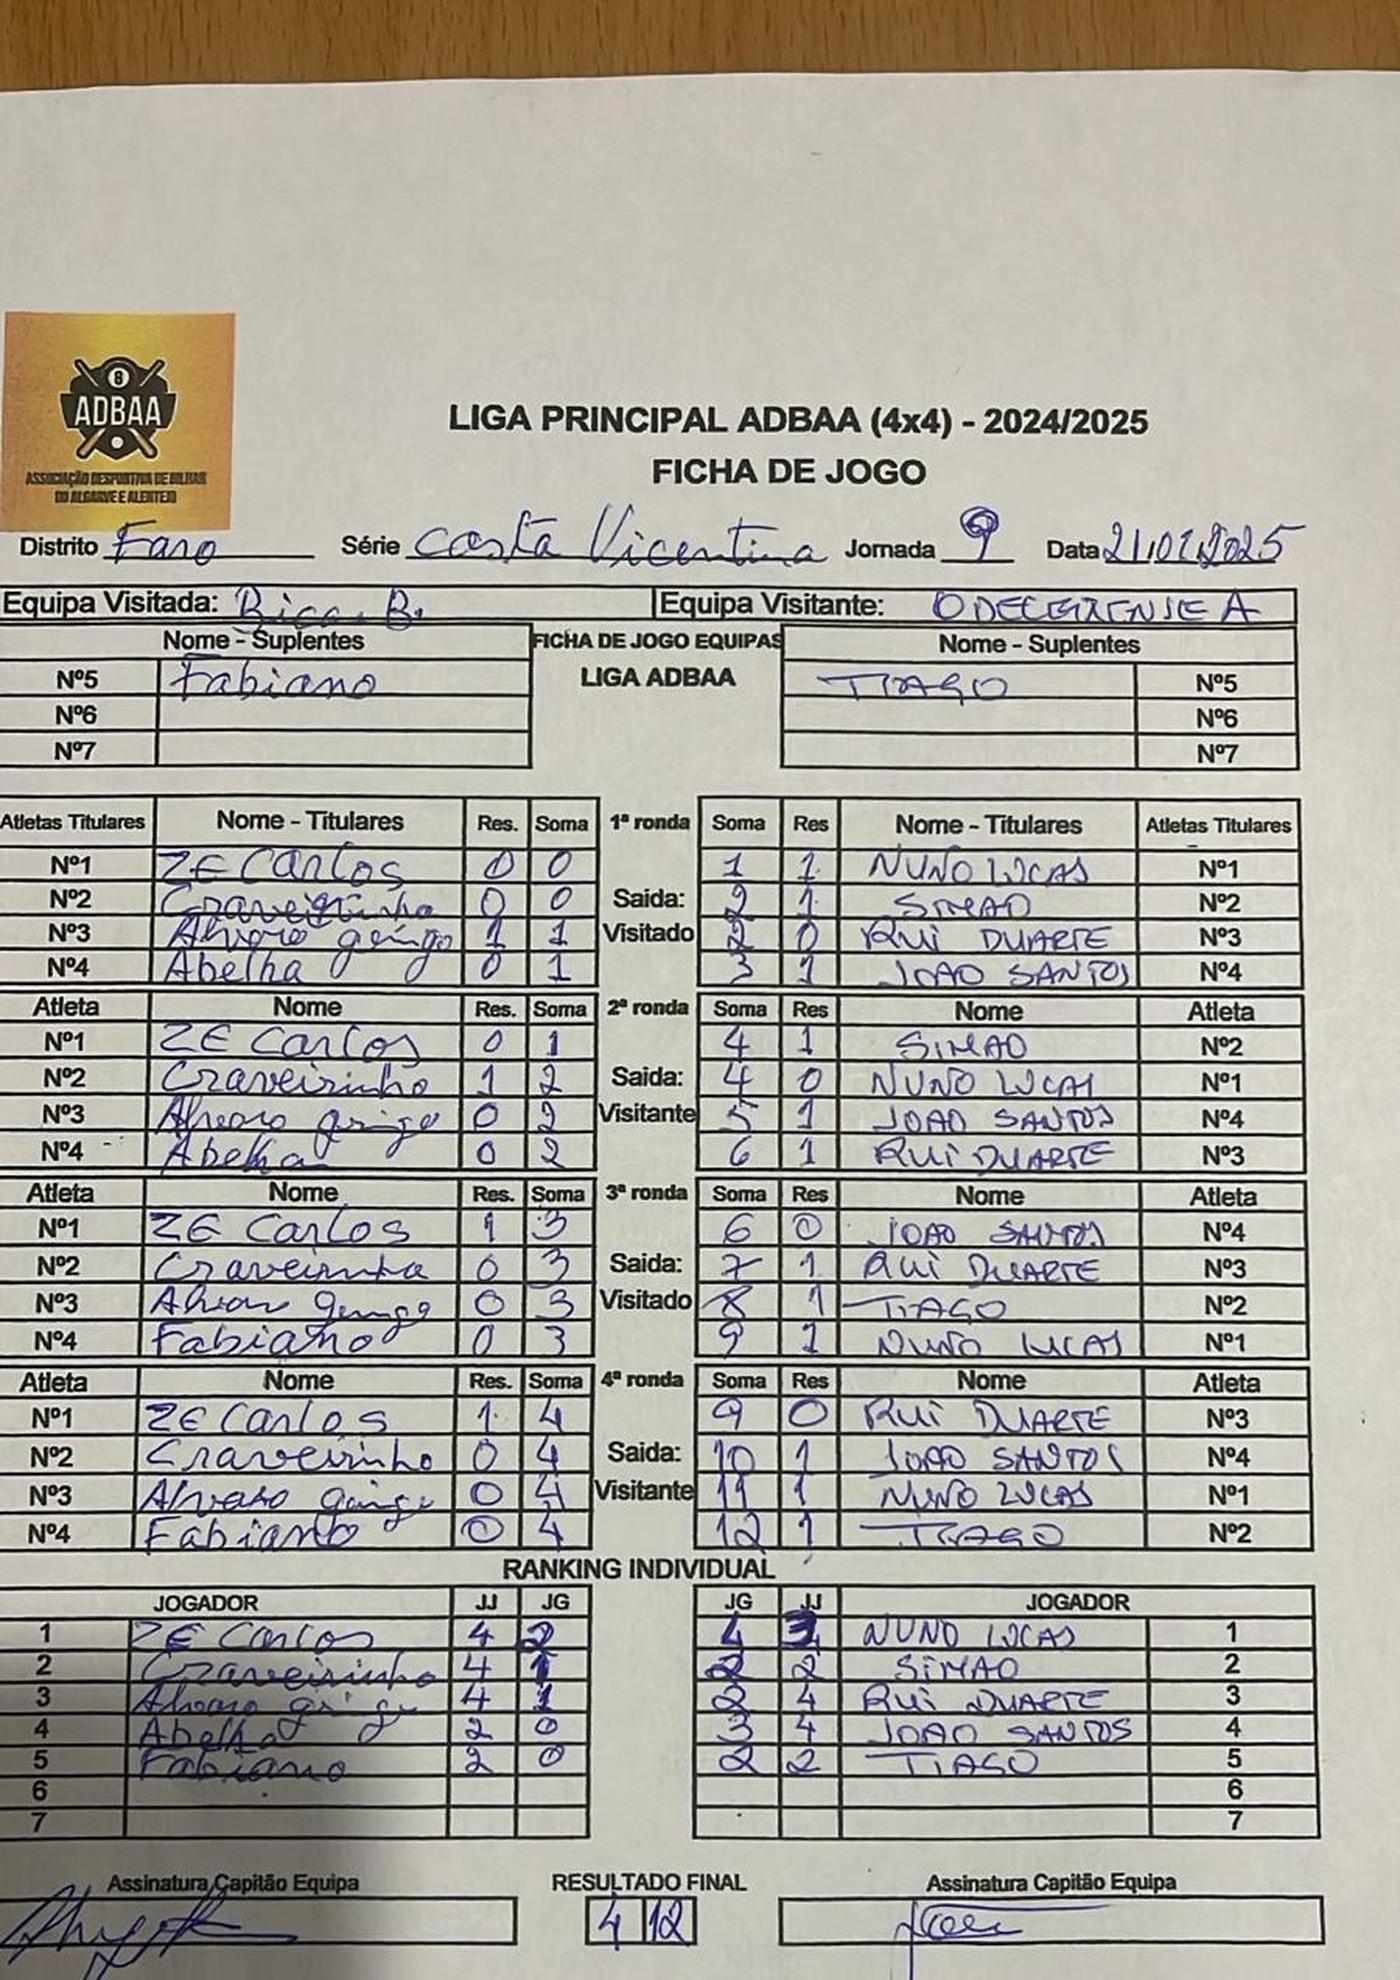 8
ADBAA
ASSOCIAÇÃO DESPORTIVA DE BILHAR
DO ALGARVE E ALENTEJO
LIGA PRINCIPAL ADBAA (4x4) - 2024/2025
FICHA DE JOGO
Distrito Faro Série Costa Vicentina Jornada 9 Data 21/02/2025
Equipa Visitada: Bica B. Equipa Visitante: ODECEIXENSE A
Nome - Suplentes FICHA DE JOGO EQUIPAS Nome - Suplentes
Nº5 Fabiano LIGA ADBAA TIAGO Nº5
Nº6 Nº6
Nº7 Nº7
Atletas Titulares Nome - Titulares Res. Soma 1ª ronda Soma Res Nome - Titulares Atletas Titulares
Nº1 ZE Carlos 0 0 1 1 NUNO LUCAS Nº1
Nº2 Craveirinho 0 0 Saida: 2 1 SIMAO Nº2
Nº3 Alvaro gringo 1 1 Visitado 2 0 RUI DUARTE Nº3
Nº4 Abelha 0 1 3 1 JOAO SANTOS Nº4
Atleta Nome Res. Soma 2ª ronda Soma Res Nome Atleta
Nº1 ZE Carlos 0 1 4 1 SIMAO Nº2
Nº2 Craveirinho 1 2 Saida: 4 0 NUNO LUCAS Nº1
Nº3 Alvaro gringo 0 2 Visitante 5 1 JOAO SANTOS Nº4
Nº4 Abelha 0 2 6 1 RUI DUARTE Nº3
Atleta Nome Res. Soma 3ª ronda Soma Res Nome Atleta
Nº1 ZE Carlos 1 3 6 0 JOAO SANTOS Nº4
Nº2 Craveirinha 0 3 Saida: 7 1 RUI DUARTE Nº3
Nº3 Alvaro gringo 0 3 Visitado 8 1 TIAGO Nº2
Nº4 Fabiano 0 3 9 1 NUNO LUCAS Nº1
Atleta Nome Res. Soma 4ª ronda Soma Res Nome Atleta
Nº1 ZE Carlos 1 4 9 0 RUI DUARTE Nº3
Nº2 Craveirinho 0 4 Saida: 10 1 JOAO SANTOS Nº4
Nº3 Alvaro gringo 0 4 Visitante 11 1 NUNO LUCAS Nº1
Nº4 Fabiano 0 4 12 1 TIAGO Nº2
RANKING INDIVIDUAL
JOGADOR JJ JG JG JJ JOGADOR
1 ZE Carlos 4 2 4 3 NUNO LUCAS 1
2 Craveirinho 4 1 2 2 SIMAO 2
3 Alvaro gringo 4 1 2 4 RUI DUARTE 3
4 Abelha 2 0 3 4 JOAO SANTOS 4
5 Fabiano 2 0 2 2 TIAGO 5
6 6
7 7
Assinatura Capitão Equipa RESULTADO FINAL Assinatura Capitão Equipa
4 12